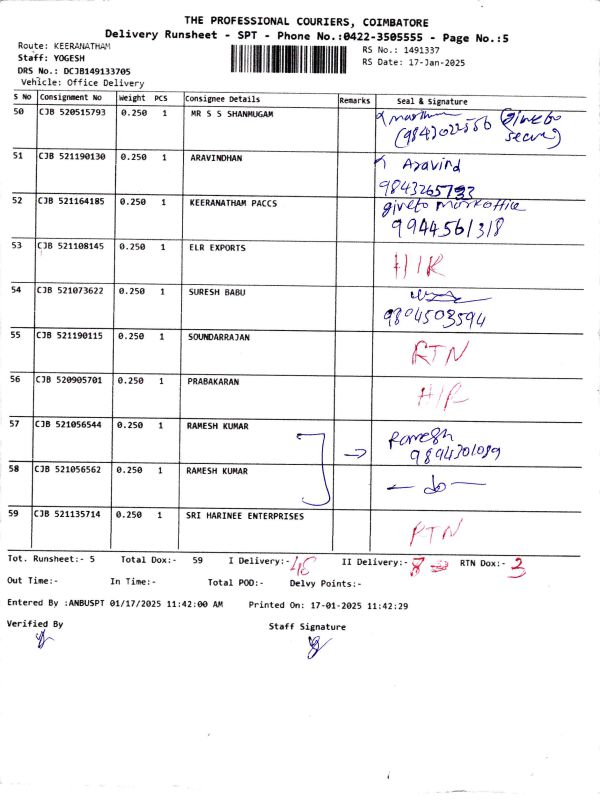 THE PROFESSIONAL COURIERS, COIMBATORE
Delivery Runsheet - SPT - Phone No.:0422-3505555 - Page No.:5
Route: KEERANATHAM RS No.: 1491337
Staff: YOGESH RS Date: 17-Jan-2025
DRS No.: DCJB149133705
Vehicle: Office Delivery
S No Consignment No Weight PCS Consignee Details Remarks Seal & Signature
50 CJB 520515793 0.250 1 MR S S SHANMUGAM
51 CJB 521190130 0.250 1 ARAVINDHAN Aravind
9843265733
52 CJB 521164185 0.250 1 KEERANATHAM PACCS giveto
9944561318
53 CJB 521108145 0.250 1 ELR EXPORTS H/R
54 CJB 521073622 0.250 1 SURESH BABU
9894503594
55 CJB 521190115 0.250 1 SOUNDARRAJAN RTN
56 CJB 520905701 0.250 1 PRABAKARAN H/R
57 CJB 521056544 0.250 1 RAMESH KUMAR Ramesh
9894301089
58 CJB 521056562 0.250 1 RAMESH KUMAR - do -
59 CJB 521135714 0.250 1 SRI HARINEE ENTERPRISES RTN
Tot. Runsheet:- 5 Total Dox:- 59 I Delivery:- 48 II Delivery:- 8 RTN Dox:- 3
Out Time:- In Time:- Total POD:- Delvy Points:-
Entered By :ANBUSPT 01/17/2025 11:42:00 AM Printed On: 17-01-2025 11:42:29
Verified By Staff Signature